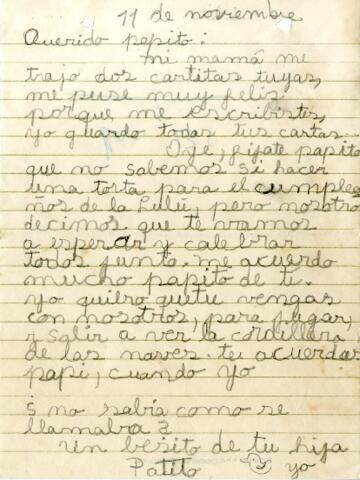 11 de noviembre
Querido papito:
mi mamá me
trajo dos cartitas tuyas,
me puse muy feliz
porque me escribistes,
yo guardo todas tus cartas.
Oye, fijate papito
que no sabemos si hacer
una torta para el cumplea
ños de la Lulú, pero nosotro
decimos que te vamos
a esperar y calebrar
todos junto. me acuerdo
mucho papito de ti.
yo quiero que tu vengas
con nosotros, para jugar,
y salir a ver la cordillera
de las naves. te acuerdas
papi, cuando yo
no sabía como se
llamabra?
Un besito de tu hija
Patito yo